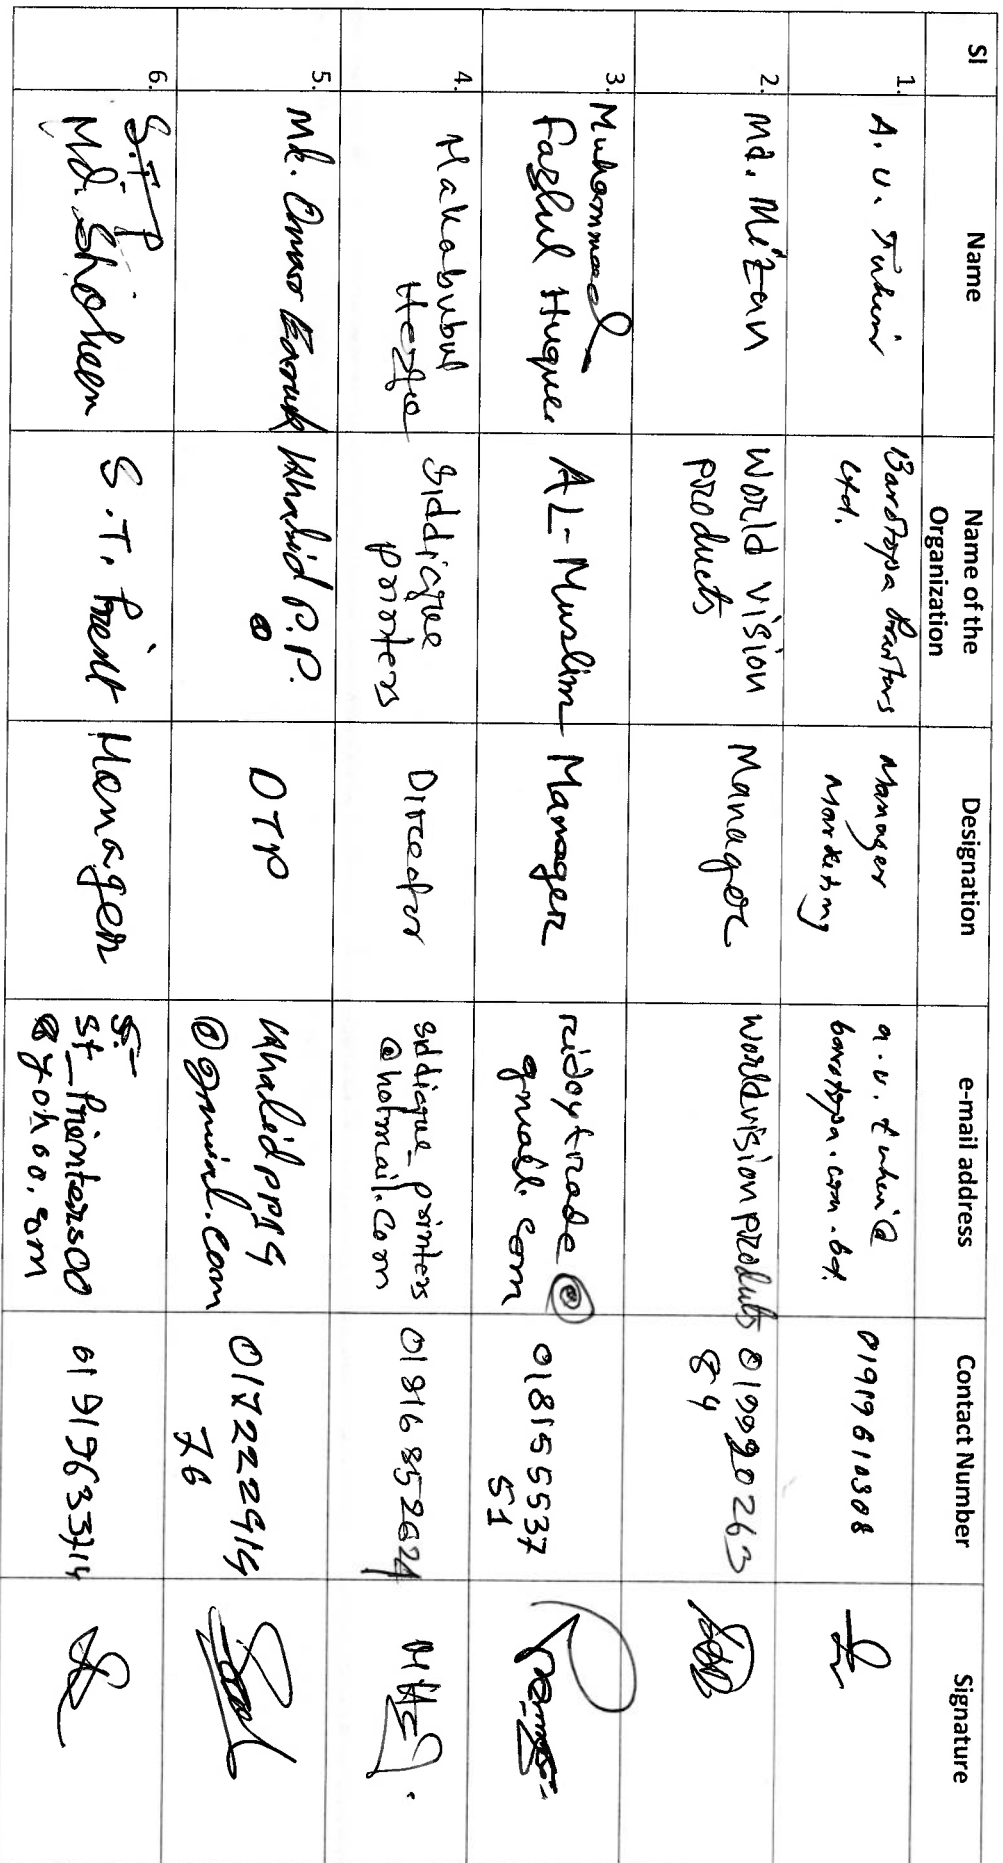 Sl Name Name of the Organization Designation e-mail address Contact Number Signature
1. A. U. Tuhin Barotopa Printers Ltd. Manager Marketing a.u.tuhin@ barotopa.com.bd. 01919610308
2. Md. Mizan World Vision products Manager worldvisionproduts 0199920263 84
3. Muhammad Fazlul Huque. AL-Muslim Manager ridoytrade@ gmail.com 018155537 51
4. Makabubul Siddique printers Director siddique_printers @hotmail.com 01816852624
5. Md. Omar Faruk Khalid P.P. DTP @gmail.com 017222914 76
6. S.T.P Md. Shoheen S.T. Print Manager 01919633714